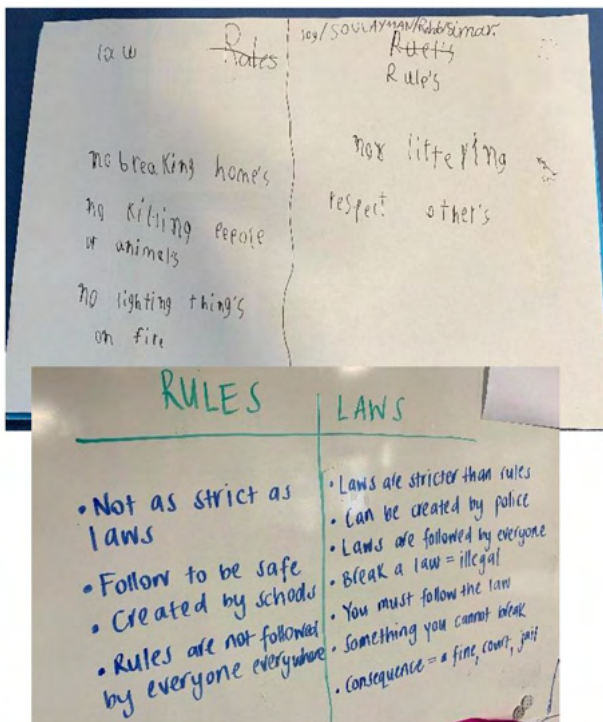 law
Rules
SOULAYMAN/Rabb/simar.
Ruel's
Rule's
no breaking home's
no killing people
or animals
no lighting thing's
on fire
littering
respect other's
RULES
LAWS
• Not as strict as
laws
• Follow to be safe
• Created by schools
• Rules are not followed
by everyone everywhere
• Laws are stricter than rules
• Can be created by police
• Laws are followed by everyone
• Break a law = illegal
• You must follow the law
• Something you cannot break
• Consequence = a fine, court, jail